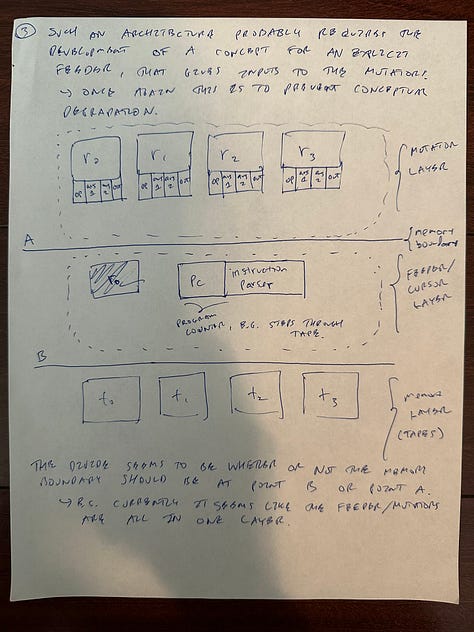 ③ SUCH AN ARCHITECTURE PROBABLY REQUIRES THE
DEVELOPMENT OF A CONCEPT FOR AN EXPLICIT
FEEDER, THAT GIVES INPUTS TO THE MUTATORS.
↳ ONCE AGAIN THIS IS TO PREVENT CONCEPTUAL
DEGRADATION.
r0 r1 r2 r3
OP arg 1 arg 2 out OP arg 1 arg 2 out OP arg 1 arg 2 out OP arg 1 arg 2 out
MUTATOR
LAYER
A
MEMORY
boundary
PC instruction
Parser
FEEDER/
CURSOR
LAYER
PROGRAM
COUNTER, E.G. STEPS THROUGH
TAPE.
B
t0 t1 t2 t3
MEMORY
LAYER
(TAPES)
THE DIVIDE SEEMS TO BE WHETHER OR NOT THE MEMORY
BOUNDARY SHOULD BE AT POINT B OR POINT A.
↳ E.G. CURRENTLY IT SEEMS LIKE THE FEEDER/MUTATORS
ARE ALL IN ONE LAYER.